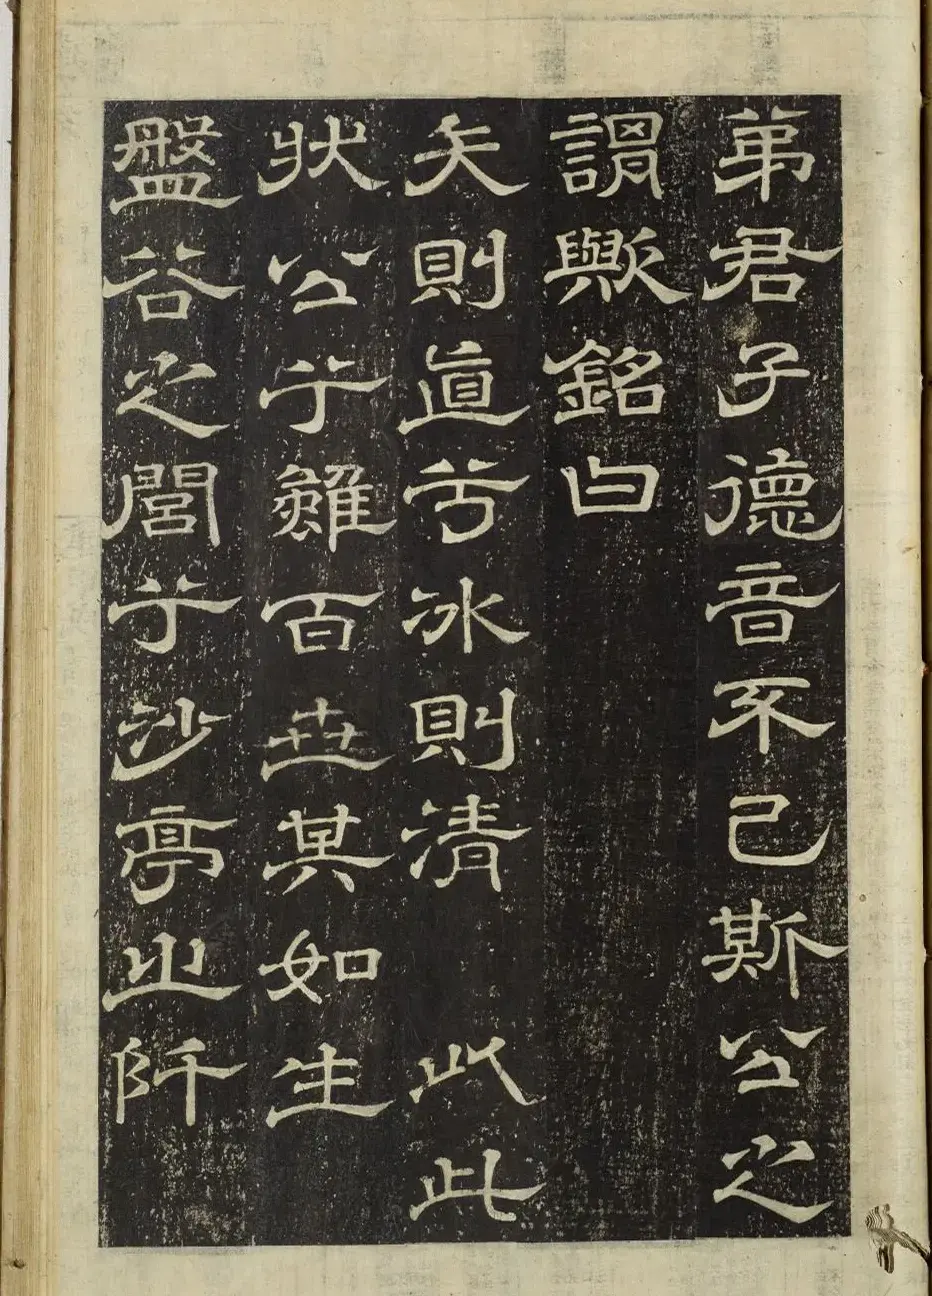 弟君子德音不已斯公之
謂歟銘曰
矢則直兮冰則清 以此
狀公乎雖百世其如生
盤谷之閭乎沙亭之阡